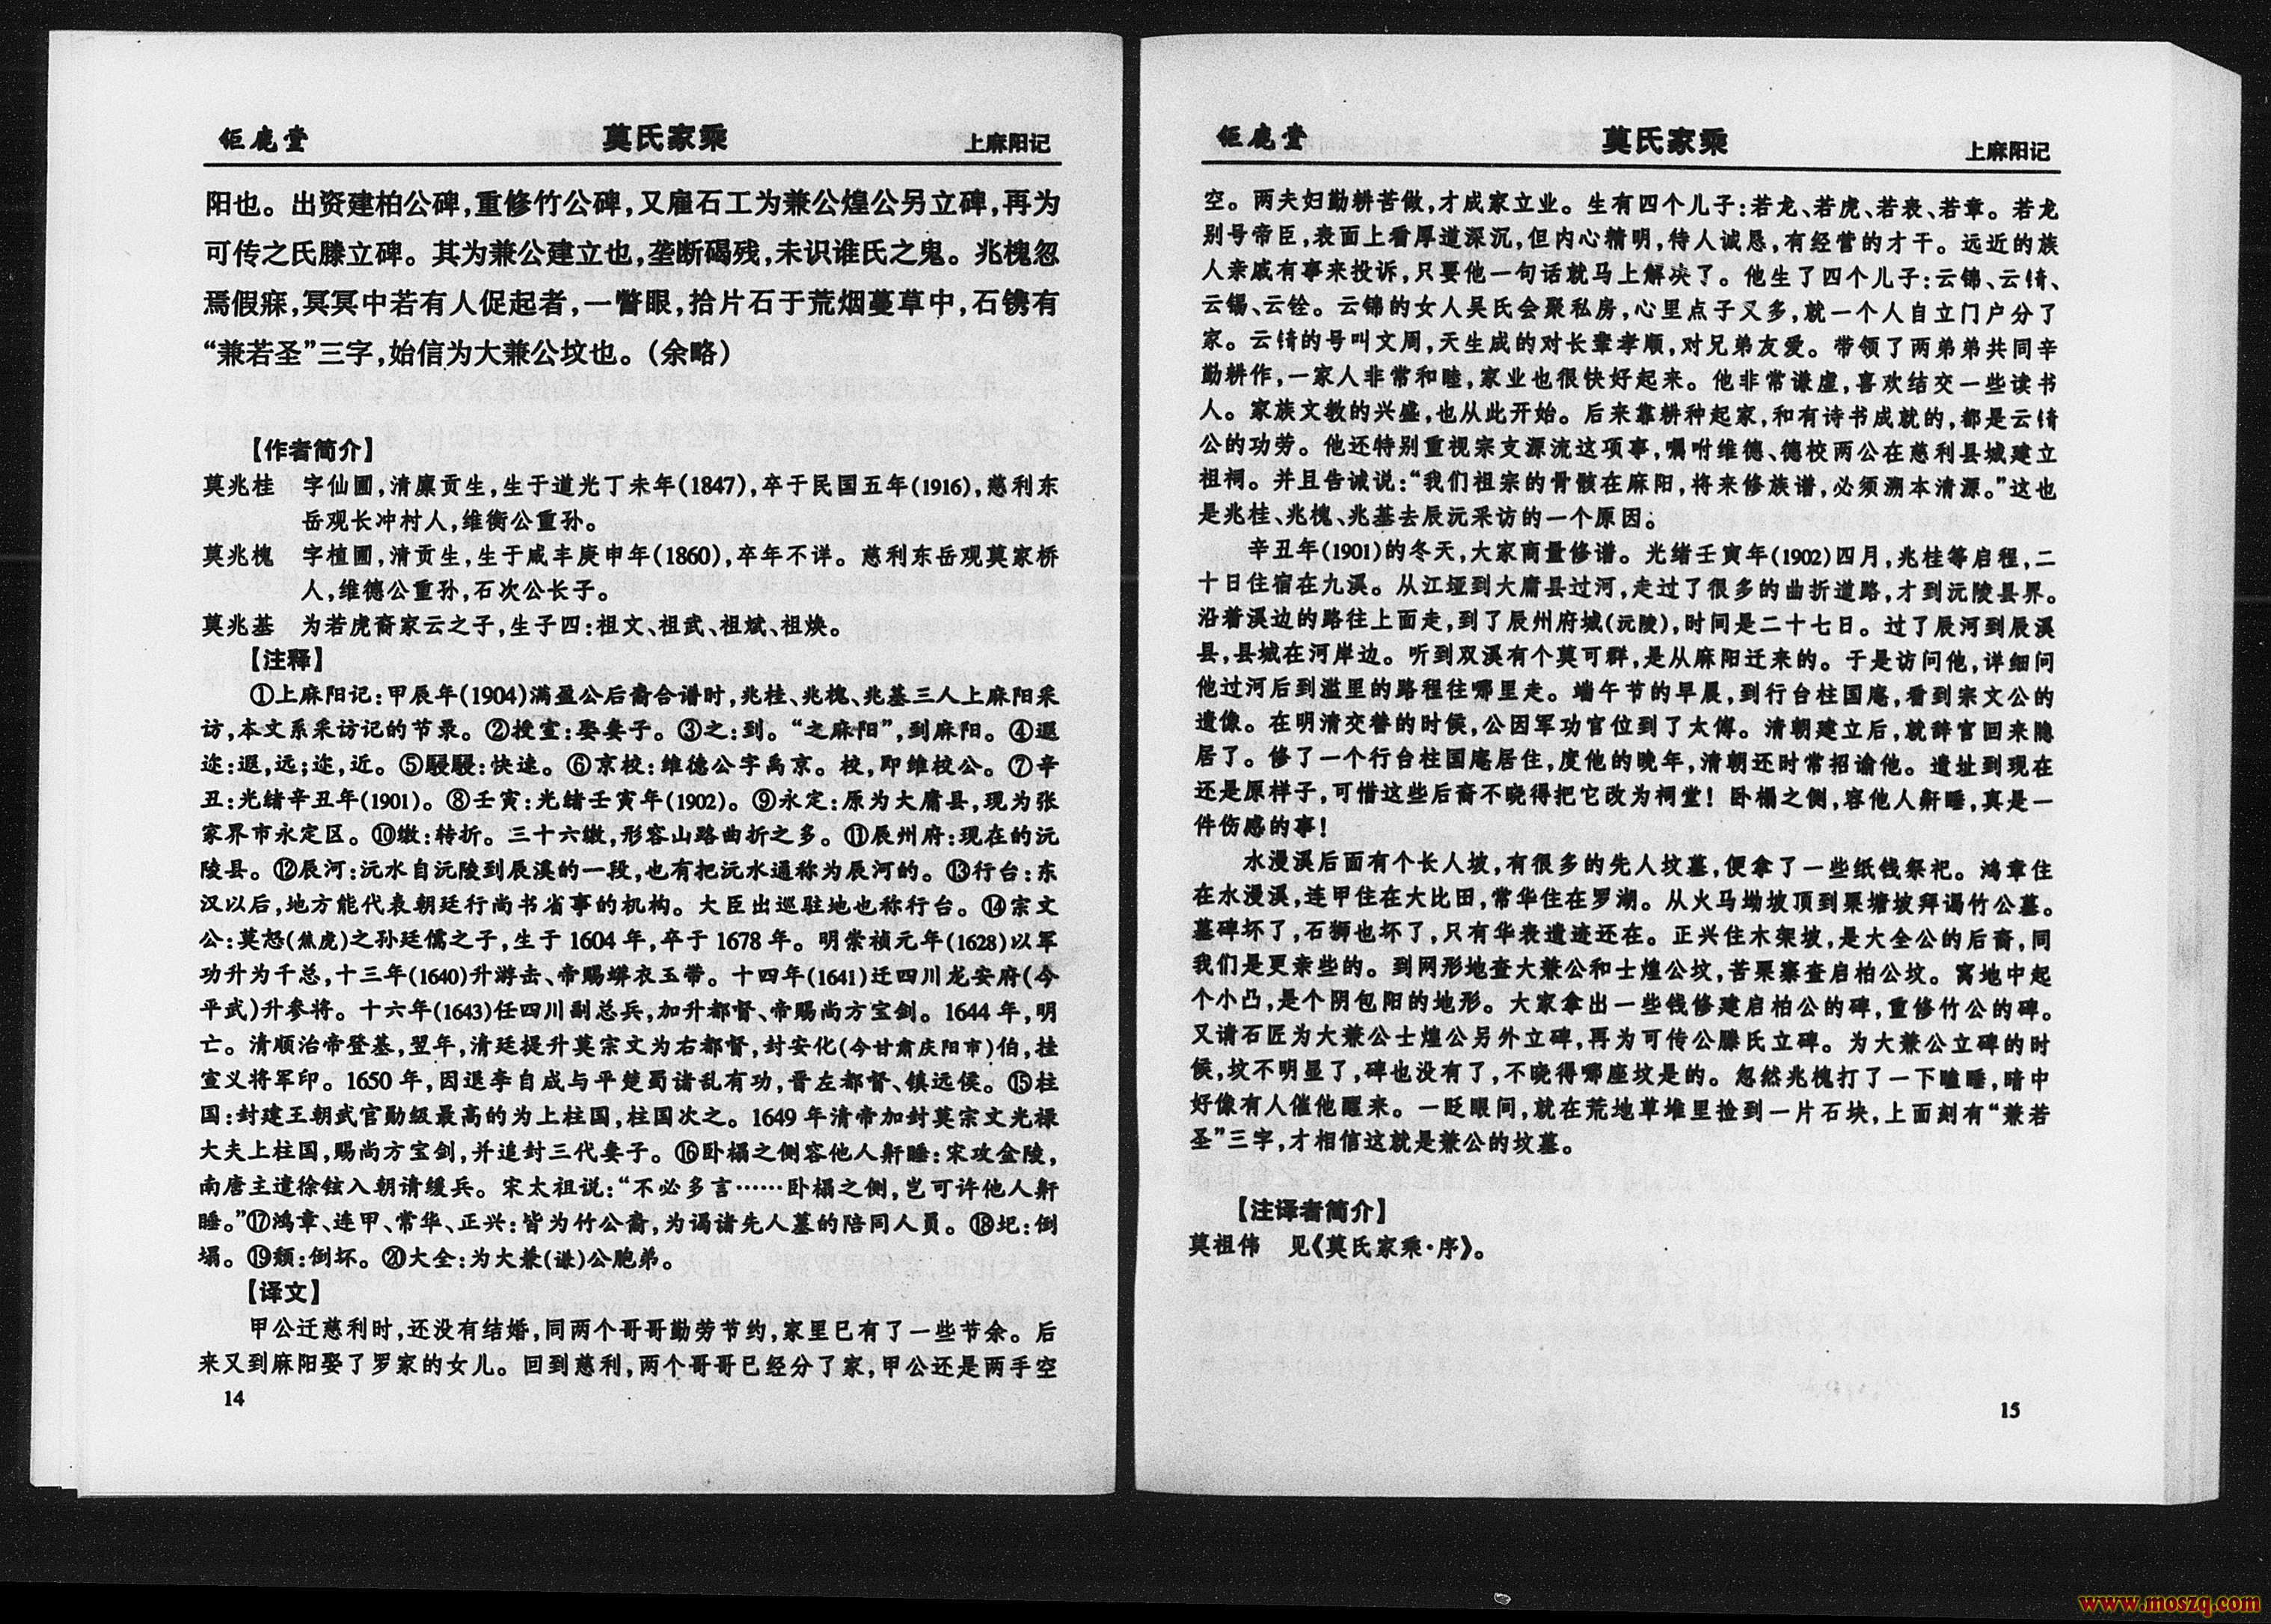 钜鹿堂 莫氏家乘 上麻阳记
阳也。出资建柏公碑,重修竹公碑,又雇石工为兼公煌公另立碑,再为
可传之氏滕立碑。其为兼公建立也,垄断碣残,未识谁氏之鬼。兆槐忽
焉假寐,冥冥中若有人促起者,一瞥眼,拾片石于荒烟蔓草中,石镌有
“兼若圣”三字,始信为大兼公坟也。(余略)
【作者简介】
莫兆桂 字仙圃,清廪贡生,生于道光丁未年(1847),卒于民国五年(1916),慈利东
岳观长冲村人,维衡公重孙。
莫兆槐 字植圃,清贡生,生于咸丰庚申年(1860),卒年不详。慈利东岳观莫家桥
人,维德公重孙,石次公长子。
莫兆基 为若虎裔家云之子,生子四:祖文、祖武、祖斌、祖焕。
【注释】
①上麻阳记:甲辰年(1904)满盈公后裔合谱时,兆桂、兆槐、兆基三人上麻阳采
访,本文系采访记的节录。②授室:娶妻子。③之:到。“之麻阳”,到麻阳。④遐
迩:遐,远;迩,近。⑤骎骎:快速。⑥京校:维德公字禹京。校,即维校公。⑦辛
丑:光绪辛丑年(1901)。⑧壬寅:光绪壬寅年(1902)。⑨永定:原为大庸县,现为张
家界市永定区。⑩缴:转折。三十六缴,形容山路曲折之多。⑪辰州府:现在的沅
陵县。⑫辰河:沅水自沅陵到辰溪的一段,也有把沅水通称为辰河的。⑬行台:东
汉以后,地方能代表朝廷行尚书省事的机构。大臣出巡驻地也称行台。⑭宗文
公:莫怒(焦虎)之孙廷儒之子,生于1604年,卒于1678年。明崇祯元年(1628)以军
功升为千总,十三年(1640)升游击、帝赐蟒衣玉带。十四年(1641)迁四川龙安府(今
平武)升参将。十六年(1643)任四川副总兵,加升都督、帝赐尚方宝剑。1644年,明
亡。清顺治帝登基,翌年,清廷提升莫宗文为右都督,封安化(今甘肃庆阳市)伯,挂
宣义将军印。1650年,因退李自成与平楚蜀诸乱有功,晋左都督、镇远侯。⑮柱
国:封建王朝武官勋级最高的为上柱国,柱国次之。1649年清帝加封莫宗文光禄
大夫上柱国,赐尚方宝剑,并追封三代妻子。⑯卧榻之侧容他人鼾睡:宋攻金陵,
南唐主遣徐铉入朝请缓兵。宋太祖说:“不必多言……卧榻之侧,岂可许他人鼾
睡。”⑰鸿章、连甲、常华、正兴:皆为竹公裔,为谒诸先人墓的陪同人员。⑱圮:倒
塌。⑲颓:倒坏。⑳大全:为大兼(谦)公胞弟。
【译文】
甲公迁慈利时,还没有结婚,同两个哥哥勤劳节约,家里已有了一些节余。后
来又到麻阳娶了罗家的女儿。回到慈利,两个哥哥已经分了家,甲公还是两手空
14
钜鹿堂 莫氏家乘 上麻阳记
空。两夫妇勤耕苦做,才成家立业。生有四个儿子:若龙、若虎、若衮、若章。若龙
别号帝臣,表面上看厚道深沉,但内心精明,待人诚恳,有经营的才干。远近的族
人亲戚有事来投诉,只要他一句话就马上解决了。他生了四个儿子:云锦、云锖、
云锡、云铨。云锦的女人吴氏会聚私房,心里点子又多,就一个人自立门户分了
家。云锖的号叫文周,天生成的对长辈孝顺,对兄弟友爱。带领了两弟弟共同辛
勤耕作,一家人非常和睦,家业也很快好起来。他非常谦虚,喜欢结交一些读书
人。家族文教的兴盛,也从此开始。后来靠耕种起家,和有诗书成就的,都是云锖
公的功劳。他还特别重视宗支源流这项事,嘱咐维德、德校两公在慈利县城建立
祖祠。并且告诫说:“我们祖宗的骨骸在麻阳,将来修族谱,必须溯本清源。”这也
是兆桂、兆槐、兆基去辰沅采访的一个原因。
辛丑年(1901)的冬天,大家商量修谱。光绪壬寅年(1902)四月,兆桂等启程,二
十日住宿在九溪。从江垭到大庸县过河,走过了很多的曲折道路,才到沅陵县界。
沿着溪边的路往上面走,到了辰州府城(沅陵),时间是二十七日。过了辰河到辰溪
县,县城在河岸边。听到双溪有个莫可群,是从麻阳迁来的。于是访问他,详细问
他过河后到滥里的路程往哪里走。端午节的早晨,到行台柱国庵,看到宗文公的
遗像。在明清交替的时候,公因军功官位到了太傅。清朝建立后,就辞官回来隐
居了。修了一个行台柱国庵居住,度他的晚年,清朝还时常招谕他。遗址到现在
还是原样子,可惜这些后裔不晓得把它改为祠堂！卧榻之侧,容他人鼾睡,真是一
件伤感的事！
水漫溪后面有个长人坡,有很多的先人坟墓,便拿了一些纸钱祭祀。鸿章住
在水漫溪,连甲住在大比田,常华住在罗湖。从火马坳坡顶到栗塘坡拜谒竹公墓。
墓碑坏了,石狮也坏了,只有华表遗迹还在。正兴住木架坡,是大全公的后裔,同
我们是更亲些的。到网形地查大兼公和士煌公坟,苦栗寨查启柏公坟。窝地中起
个小凸,是个阴包阳的地形。大家拿出一些钱修建启柏公的碑,重修竹公的碑。
又请石匠为大兼公士煌公另外立碑,再为可传公滕氏立碑。为大兼公立碑的时
候,坟不明显了,碑也没有了,不晓得哪座坟是的。忽然兆槐打了一下瞌睡,暗中
好像有人催他醒来。一眨眼间,就在荒地草堆里捡到一片石块,上面刻有“兼若
圣”三字,才相信这就是兼公的坟墓。
【注译者简介】
莫祖伟 见《莫氏家乘·序》。
15
www.moszq.com